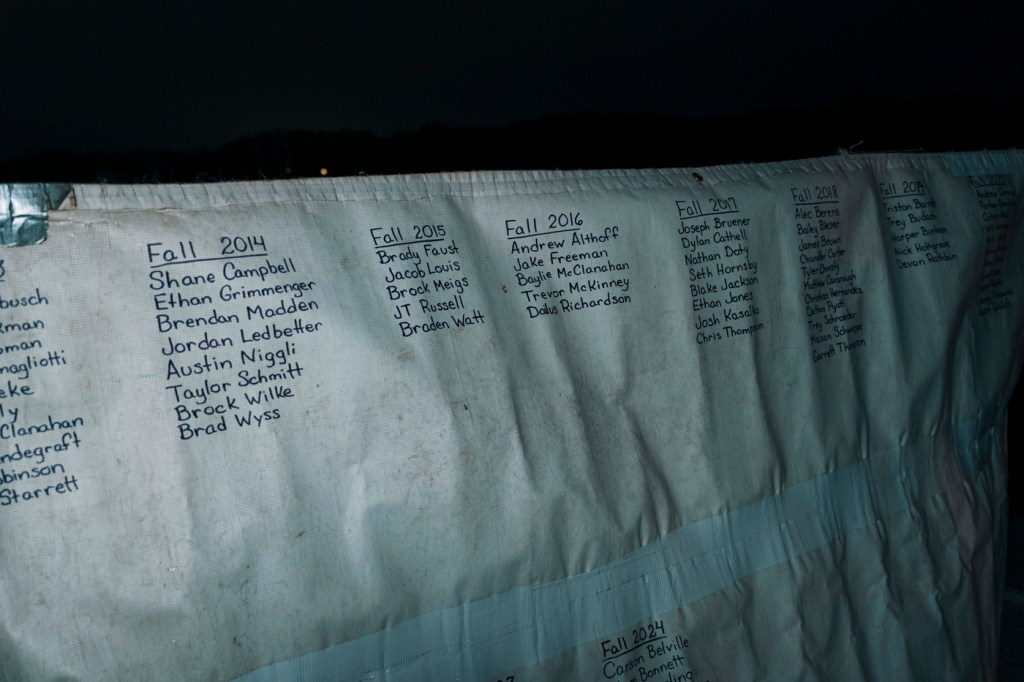 busch
man
man
magliotti
eke
ly
Clanahan
ndegraft
binson
Starrett
Fall 2014
Shane Campbell
Ethan Grimmenger
Brendan Madden
Jordan Ledbetter
Austin Niggli
Taylor Schmitt
Brock Wilke
Brad Wyss
Fall 2015
Brady Faust
Jacob Louis
Brock Meigs
JT Russell
Braden Watt
Fall 2016
Andrew Althoff
Jake Freeman
Baylie McClanahan
Trevor McKinney
Dallus Richardson
Fall 2017
Joseph Bruener
Dylan Cathell
Nathan Doty
Seth Hornsby
Blake Jackson
Ethan Jones
Josh Kasallo
Chris Thompson
Fall 2018
Alec Berens
Bailey Bleiser
James Brown
Chandler Carter
Tyler
Christian Hernandez
Dalton
Trey Schroeder
Mason
Garrett Thompson
Fall 2019
Tristan
Trey Budach
Harper
Nick
Devan Rathbun
Fall 2024
Carson Belville
Bonnett
ling